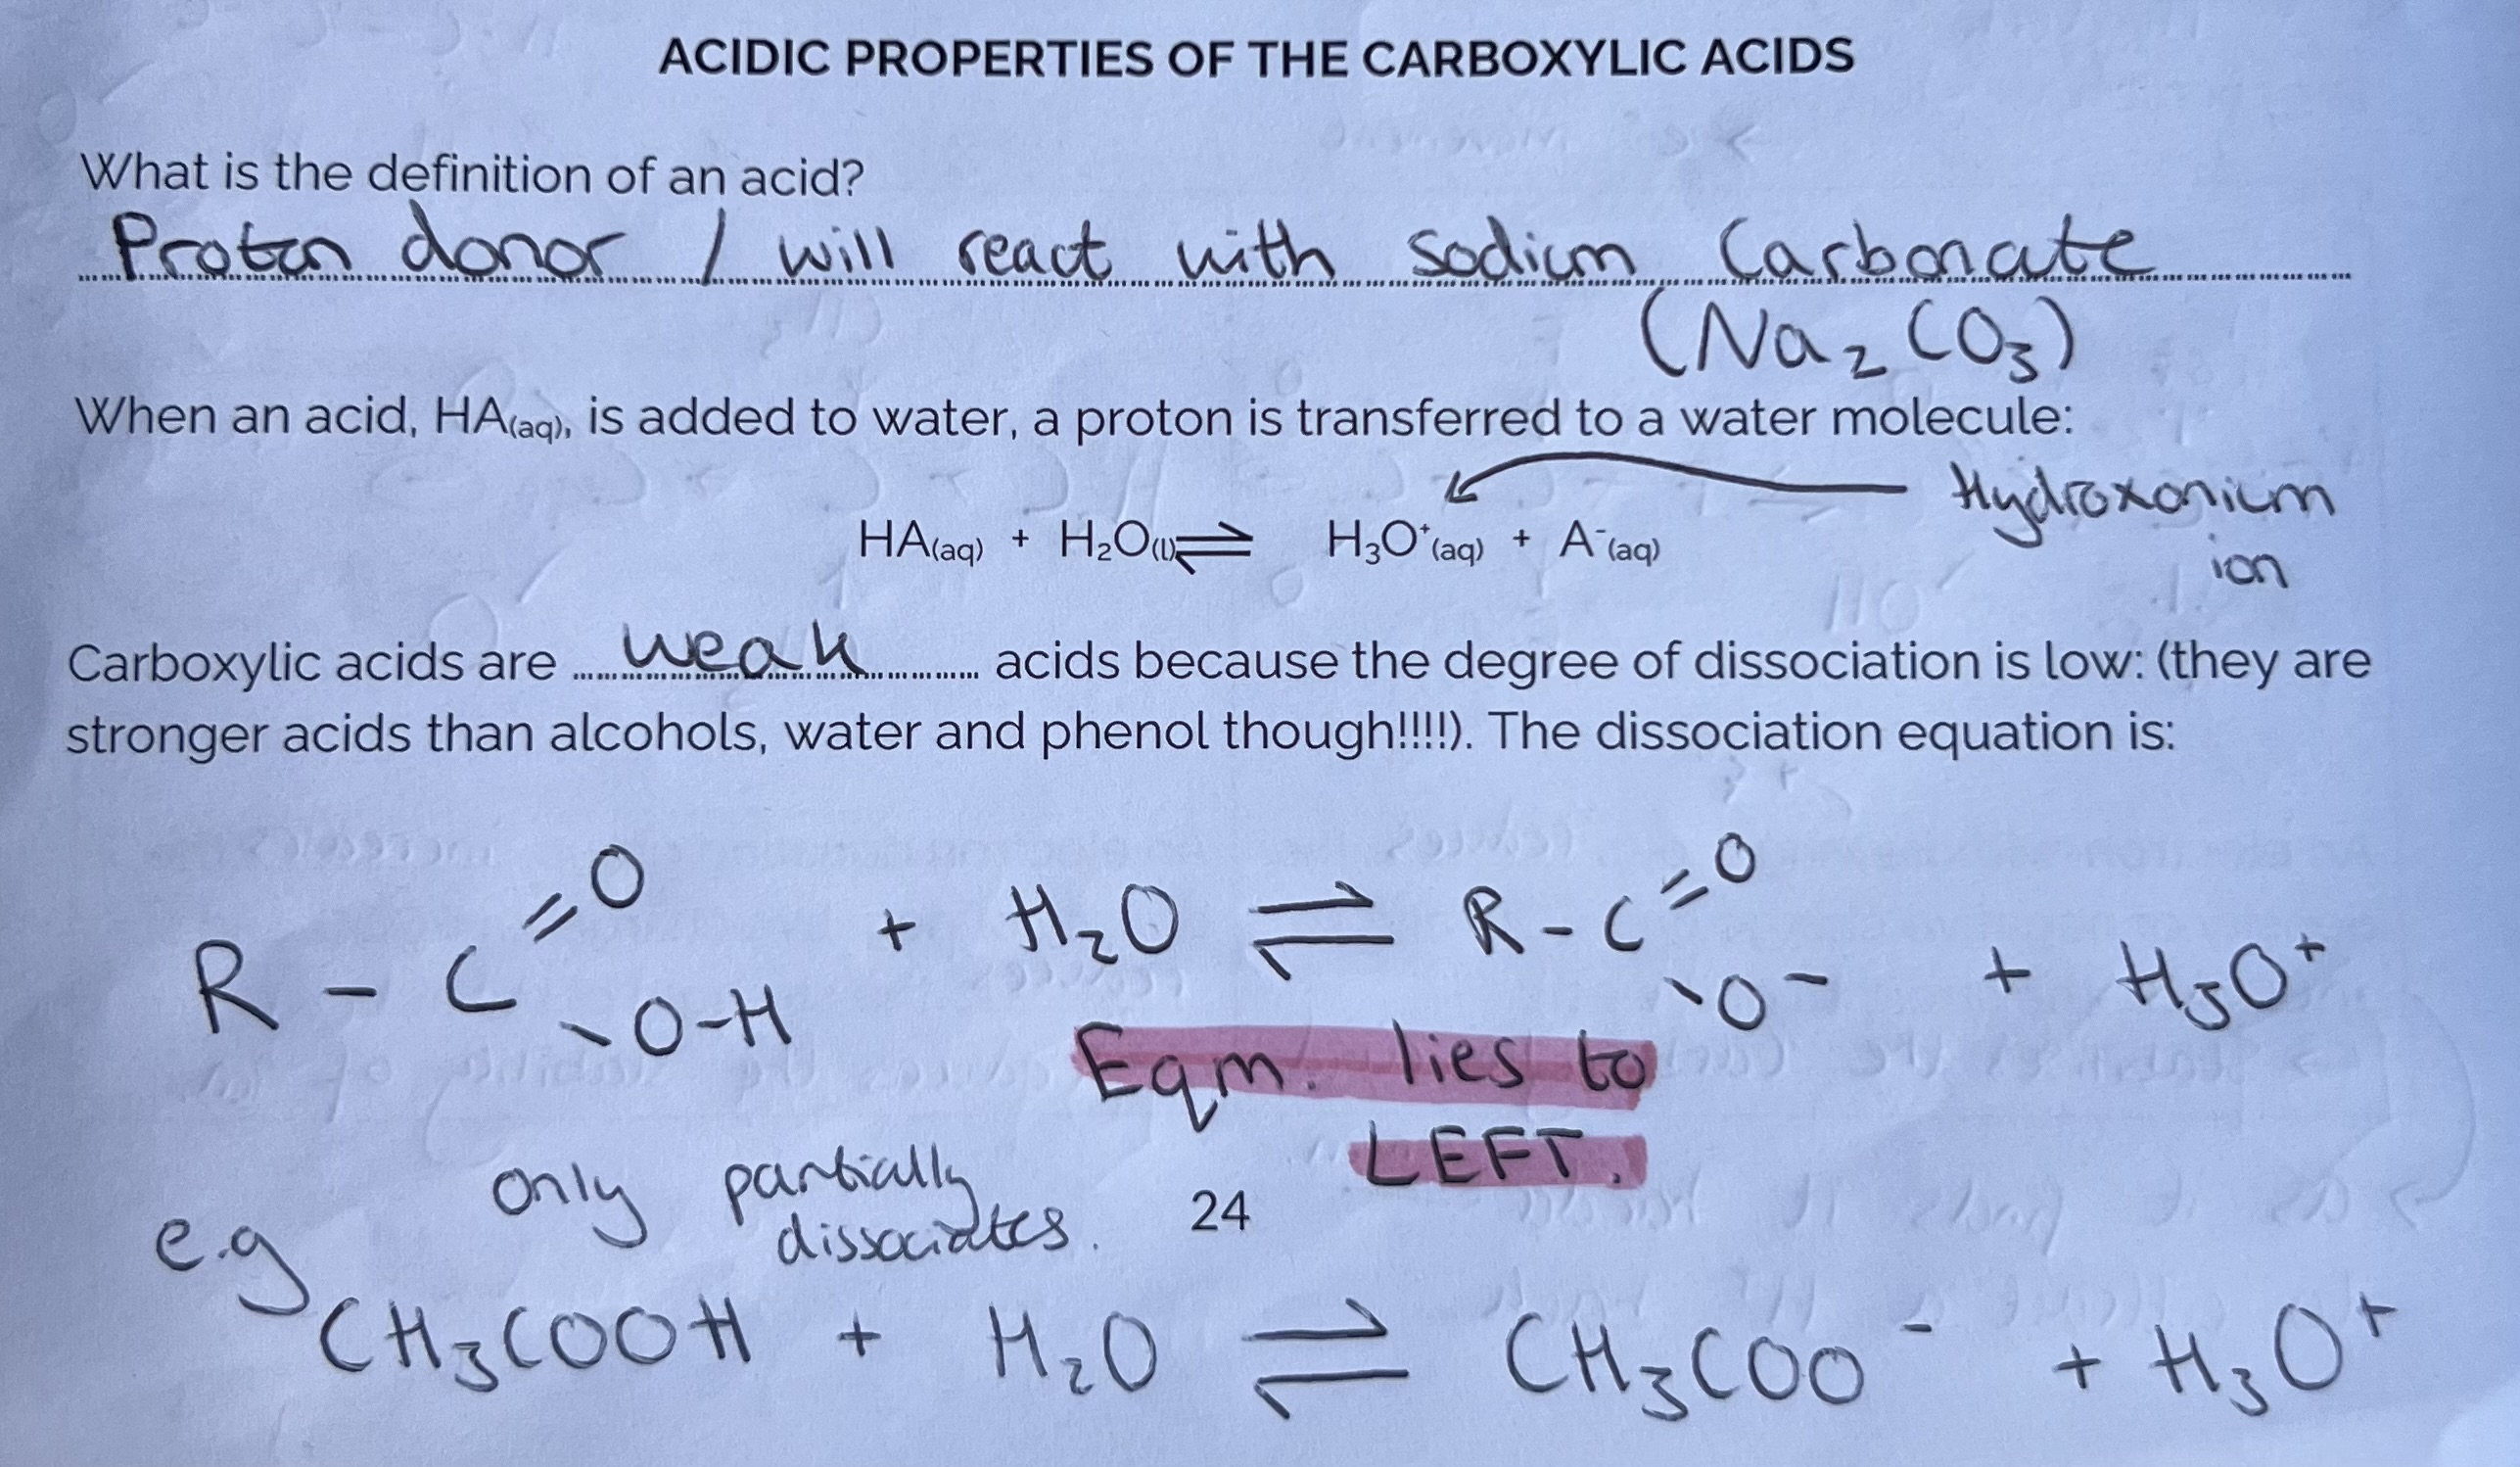 ACIDIC PROPERTIES OF THE CARBOXYLIC ACIDS
What is the definition of an acid?
Proton donor / will react with sodium Carbonate
(Na₂CO₃)
When an acid, HA(aq), is added to water, a proton is transferred to a water molecule:
Hydroxonium
ion
HA(aq) + H₂O(l) ⇌ H₃O⁺(aq) + A⁻(aq)
Carboxylic acids are weak acids because the degree of dissociation is low: (they are
stronger acids than alcohols, water and phenol though!!!!). The dissociation equation is:
R - C =O -O-H + H₂O ⇌ R - C =O -O⁻ + H₃O⁺
Eqm. lies to
LEFT.
only partially
dissociates.
24
e.g
CH₃COOH + H₂O ⇌ CH₃COO⁻ + H₃O⁺